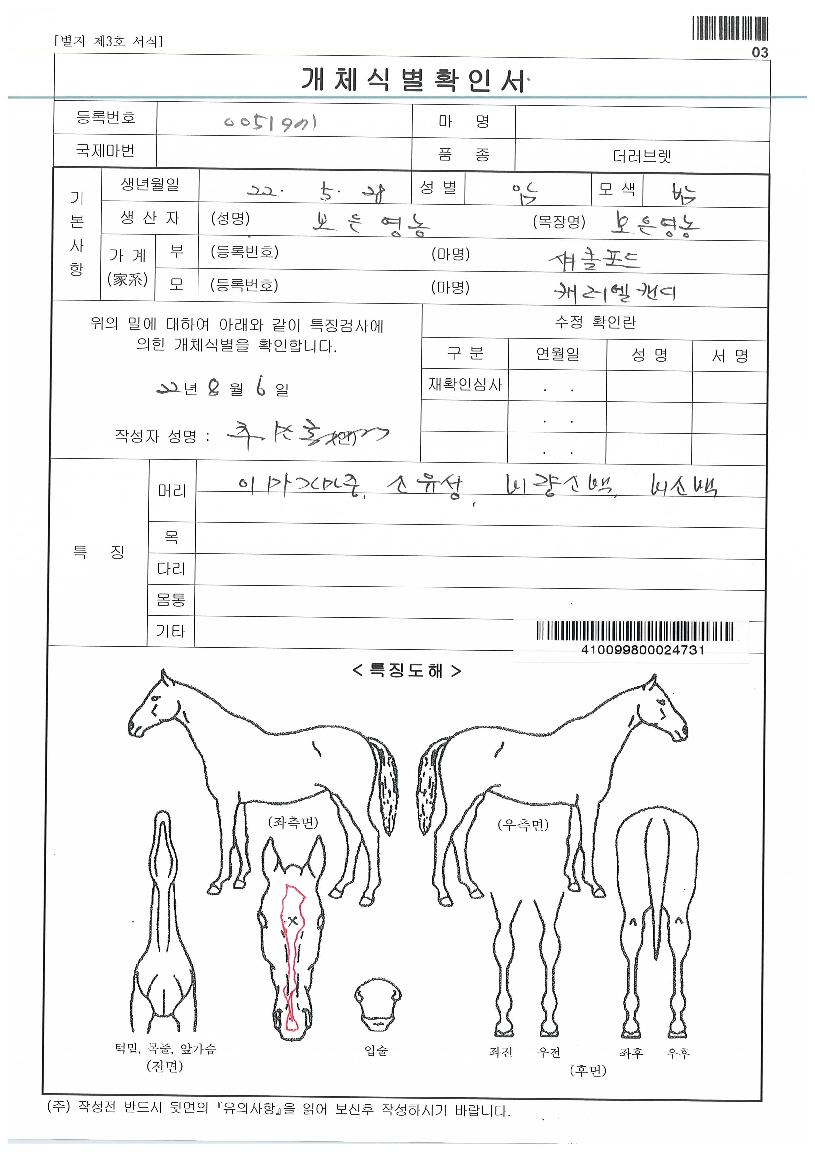 [별지 제3호 서식]
03
개체식별확인서
등록번호 0051971 마 명
국제마번 품 종 더러브렛
기본사항
생년월일 22. 5. 28 성별 암 모색
생산자 (성명) 보은영농 (목장명) 보은영농
가계 (家系) 부 (등록번호) (마명) 섀클포드
모 (등록번호) (마명) 캐리엘캔디
위의 말에 대하여 아래와 같이 특징검사에
의한 개체식별을 확인합니다.
22년 8월 6일
작성자 성명 : (인)
수정 확인란
구분 연월일 성명 서명
재확인심사 . .
. .
. .
특 징
머리 이마가마중, 소유성, 비량소백, 비소백
목
다리
몸통
기타
410099800024731
<특징도해>
(좌측면) (우측면)
턱밑, 목줄, 앞가슴 입술 좌전 우전 좌후 우후
(전면) (후면)
(주) 작성전 반드시 뒷면의 『유의사항』을 읽어 보신후 작성하시기 바랍니다.